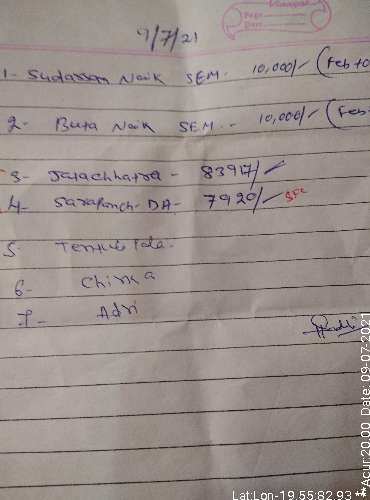 Page
Date
9/7/21
1- Sudarsan Naik SEM- 10,000/- (Feb to
2- Buta Naik SEM- - 10,000/- (Feb
3- Jalachhatra - 83917/-
4- Sarapanch-DA- 7920/- SFC
5-
6- Chinka
7- Adri
Lat:Lon-19.55:82.93 **Acur:20.00 Date: 09-07-2021